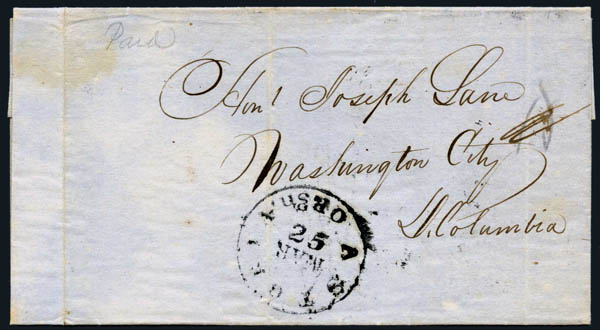 Paid
Hon^l Joseph Lane
Washington City
D. Columbia
25
MAR